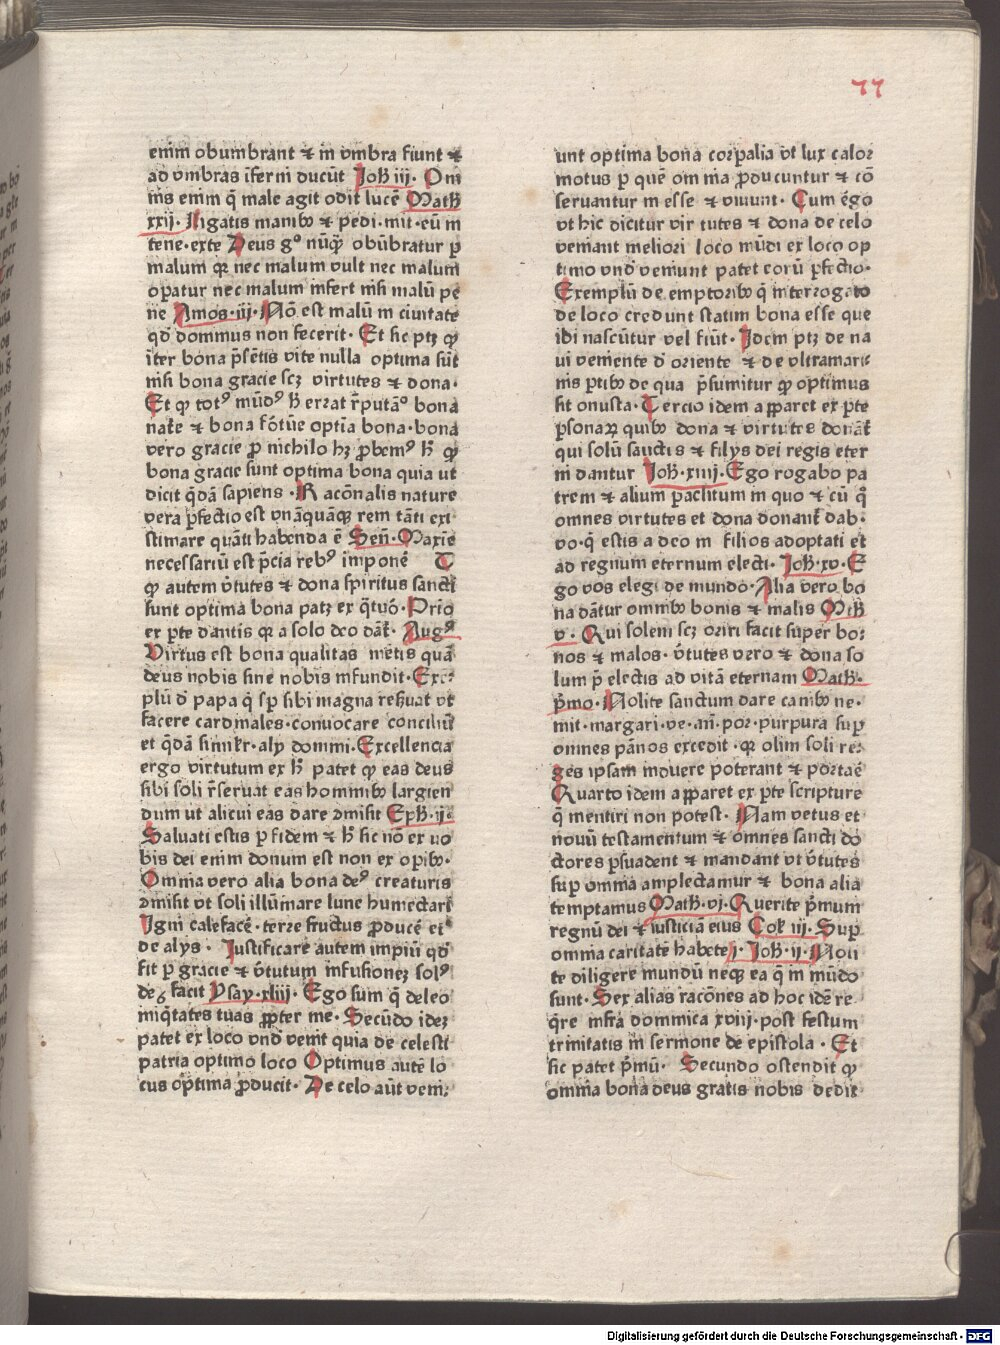 77
enim obumbrant ⁊ in vmbra fiunt ⁊
ad vmbras īferni ducūt Joh̄ iij. Om
nis enim q̄ male agit odit lucē Math̄
xxij. ligatis manibꝯ ⁊ pedi·mit·eū in
tene·exte Deus gº nūqꝫ obūbratur p̱
malum qꝛ nec malum vult nec malum
opatur nec malum infert nisi malū pe
ne Amos·iij·Nō est malū in ciuitate
qd̄ dominus non fecerit· Et sic ptꝫ ꝙ
īter bona p̄sētis vite nulla optima sūt
nisi bona gracie scꝫ virtutes ⁊ dona·
Et ꝙ totꝰ mūdꝰ h̄ errat r̄putāº bona
nate ⁊ bona fōtūe optīa bona·bona
vero gracie ꝓ nichilo hꝫ ꝓbemꝰ h̄ ꝙ
bona gracie sunt optima bona quia ut
dicit q̄dā sapiens · Racōnalis nature
vera p̱fectio est vnāquāqꝫ rem tāti exi
stimare quāti habenda ē Sen̄·Maxīe
necessariū est p̄cia rebꝰ imponē
ꝙ autem v̄tutes ⁊ dona spiritus sancti
sunt optima bona patꝫ ex q̄tuō·Prīo
ex p̱te dantis qꝛ a solo deo dāt̄· Augꝰ
Virtus est bona qualitas mētis quā
deus nobis sine nobis infundit·Exe
plū d̄ papa q̄ sp̱ sibi magna reẜuat vt
facere cardinales·conuocare conciliū
et q̄dā simikr·alij domini·Excellencia
ergo virtutum ex h̄ patet ꝙ eas deus
sibi soli r̄seruat eas hominibꝯ largien
dum ut alicui eas dare ɔmisit Eph̄·ij·
Saluati estis p̱ fidem ⁊ h̄ sic nō ex uo
bis dei enim donum est non ex opibꝯ·
Omnia vero alia bona deꝰ creaturis
ɔmisit vt soli illūinare lune humectari
Igni calefacē· terre fructus ꝓducē et
de alijs · Justificare autem impiū qd̄
fit p̱ gracie ⁊ v̄tutum infusionez solꝰ
deꝰ facit Ysay·xliij· Ego sum q̄ deleo
iniq̄tates tuas ꝓpter me· Secūdo idez
patet ex loco vnd̄ venit quia de celesti
patria optimo loco Optimus autē lo
cus optima ꝓducit· De celo aūt veni
unt optima bona corp̱alia vt lux calor
motus p̱ quē om nia ꝓducuntur ⁊ cō
seruantur in esse ⁊ viuunt· Cum ergo
vt hic dicitur vir tutes ⁊ dona de celo
veniant meliori loco mūdi ex loco op
timo vnd̄ veniunt patet eorū p̱fectio·
Exemplū de emptoribꝯ q̄ interrogato
de loco credunt statim bona esse que
ibi nascūtur vel fiūt· Idem ptꝫ de na
ui veniente d̄ oriente ⁊ de vltramari
nis p̱tibꝯ de qua p̄sumitur ꝙ optimus
sit onusta· Tercio idem apparet ex p̱te
p̱sonaꝝ quibꝯ dona ⁊ virtutes donāt̄
qui solū sanctis ⁊ filijs dei regis eter
ni dantur Joh̄·xiiij·Ego rogabo pa
trem ⁊ alium p̱aclitum in quo ⁊ cū q̄
omnes virtutes et dona donant̄ dab·
vo·q̄ estis a deo in filios adoptati et
ad regnum eternum electi· Joh̄·xv·E
go vos elegi de mundo· Alia vero bo
na dātur omnibꝯ bonis ⁊ malis Mth̄
v· Qui solem scꝫ oriri facit super bo
nos ⁊ malos· v̄tutes vero ⁊ dona so
lum p̄ electis ad vitā eternam Math̄·
p̄mo·Nolite sanctum dare canibꝯ ne·
mit·margari·ve·an̄·por·purpura sup̱
omnes pānos excedit·qꝛ olim soli re
ges ipsam mouere poterant ⁊ portaē
Quarto idem apparet ex p̱te scripture
q̄ mentiri non potest· Nam vetus et
nouū testamentum ⁊ omnes sancti do
ctores p̱suadent ⁊ mandant vt v̄tutes
sup̱ omnia amplectamur ⁊ bona alia
temptamus Math̄·vj·Querite p̄mum
regnū dei ⁊ iusticiā eius Col̄ iij·Sup̱
omnia caritate habete j· Joh̄·ij·Noli
te diligere mundū neqꝫ ea q̄ in mūdo
sunt· Sex alias racōnes ad hoc idē re
q̄re infra dominica xviij·post festum
trinitatis in sermone de epistola · Et
sic patet p̄mū· Secundo ostendit ꝙ
omnia bona deus gratis nobis dedit
Digitalisierung gefördert durch die Deutsche Forschungsgemeinschaft - DFG